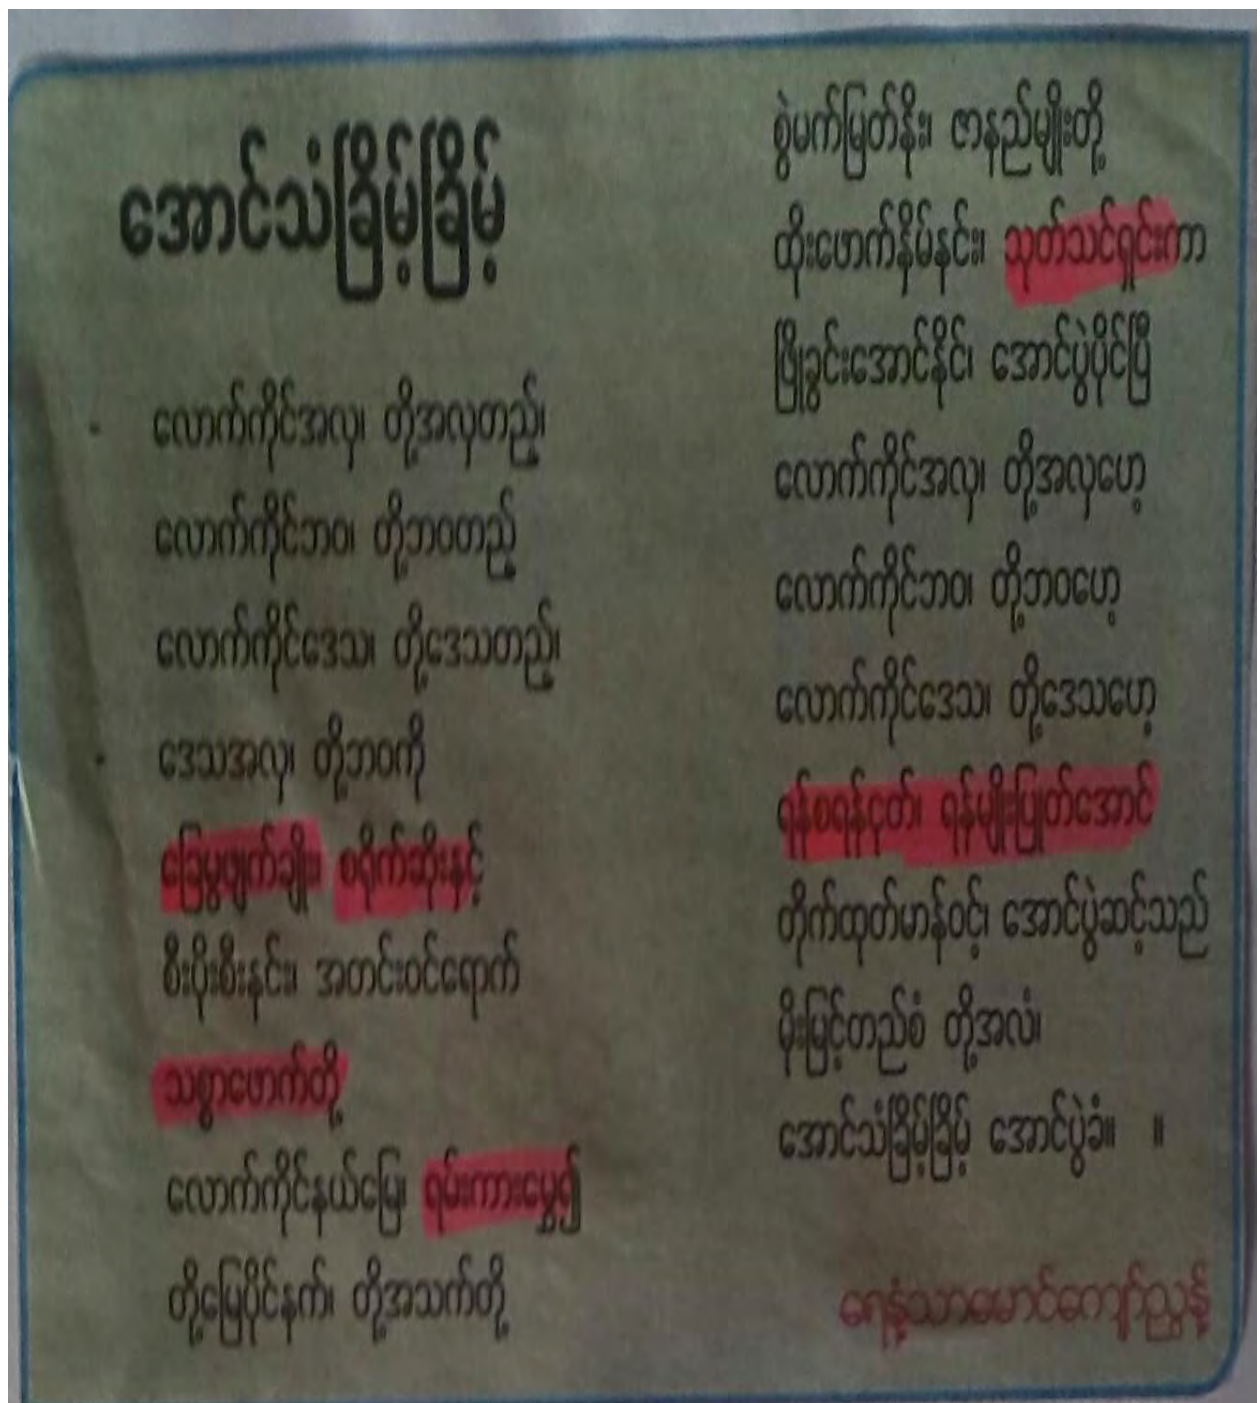 အောင်သံခြိမ့်ခြိမ့်
- လောက်ကိုင်အလှ၊ တို့အလှတည့်၊
လောက်ကိုင်ဘဝ၊ တို့ဘဝတည့်
လောက်ကိုင်ဒေသ၊ တို့ဒေသတည့်၊
- ဒေသအလှ၊ တို့ဘဝကို
ခြေမွဖျက်ချိုး၊ စရိုက်ဆိုးနှင့်
စီးပိုးစီးနင်း၊ အတင်းဝင်ရောက်
သစ္စာဖောက်တို့
လောက်ကိုင်နယ်မြေ၊ ရမ်းကားမွှေ၍
တို့မြေပိုင်နက်၊ တို့အသက်တို့
စွဲမက်မြတ်နိုး၊ ဇာနည်မျိုးတို့
ထိုးဖောက်နှိမ်နင်း၊ သုတ်သင်ရှင်းကာ
ဖြိုခွင်းအောင်နိုင်၊ အောင်ပွဲပိုင်ပြီ
လောက်ကိုင်အလှ၊ တို့အလှဟေ့
လောက်ကိုင်ဘဝ၊ တို့ဘဝဟေ့
လောက်ကိုင်ဒေသ၊ တို့ဒေသဟေ့
ရန်စရန်ငုတ်၊ ရန်မျိုးပြုတ်အောင်
တိုက်ထုတ်မာန်ဝင့်၊ အောင်ပွဲဆင့်သည်
မိုးမြင့်တည်စံ တို့အလံ၊
အောင်သံခြိမ့်ခြိမ့် အောင်ပွဲခံ။ ။
ရေနံ့သာမောင်ကျော်ညွန့်